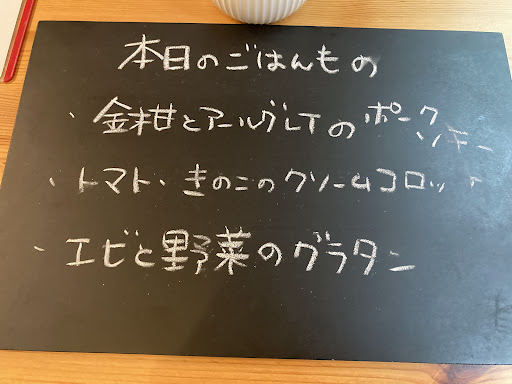 本日のごはんもの
・金柑とアールグレTのポークソテー
・トマト・きのこのクリームコロッケ
・エビと野菜のグラタン